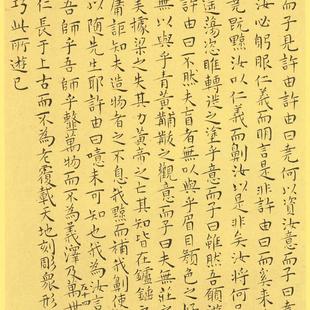 而子見許由許由曰堯何以資汝意而子曰
汝必躬服仁義而明言是非許由曰而奚來
堯既黥汝以仁義而劓汝以是非矣汝將何
遥蕩恣睢轉徙之塗乎意而子曰雖然吾願遊
許由曰不然夫盲者無以與乎眉目顏色之好
無以與乎青黃黼黻之觀意而子曰夫無莊之
美據梁之失其力黃帝之亡其知皆在鑪錘之
庸詎知夫造物者之不息我黥而補我劓使
以隨先生耶許由曰噫未可知也我為汝言
吾師乎吾師乎𩐋萬物而不為義澤及萬世
仁長于上古而不為老覆載天地刻彫眾形
巧此所遊已